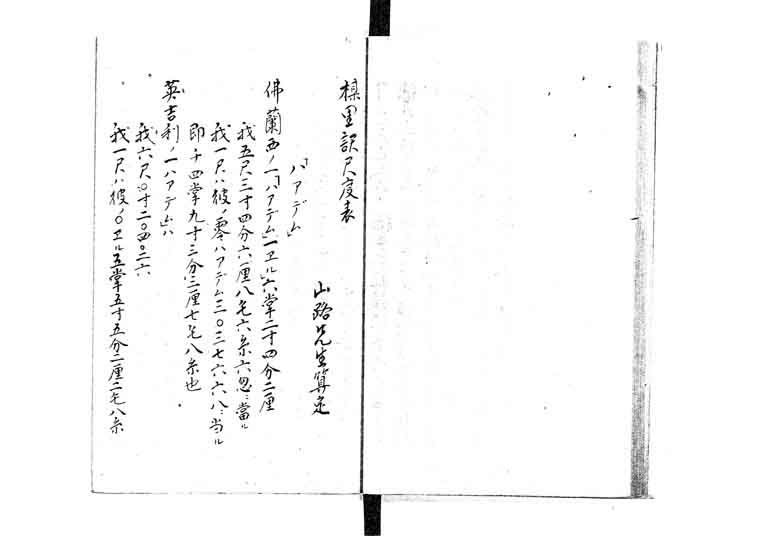 模里訳尺度表
山路先生算定
「ハアデム」
佛蘭西ノ一「ハアデム」一ヱル六掌二寸四分二厘
我五尺三寸四分六厘八毛六糸六忽ニ當ル
我一尺ハ彼ノ零ハアデム三〇三七六六八ニ当ル
即チ四掌九寸三分三厘七毛八糸也
英吉利ノ一ハアデムハ
我六尺〇寸二〇四〇三六
我一尺ハ彼ノ〇ヱル五掌五寸五分二厘二毛八糸